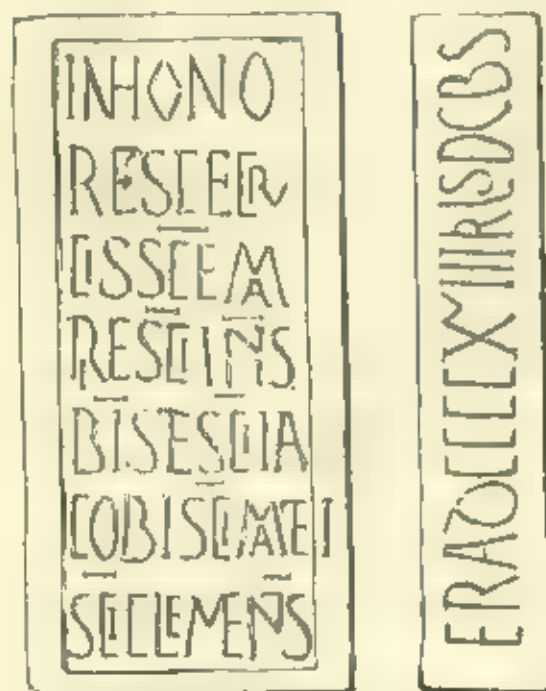 INHONO
RESCECRV
CISSCEMA
RIESCIINS
BISESCIIA
COBISCIMATEI
SCICLEMENS
ERA CCCCXIIII DCBS